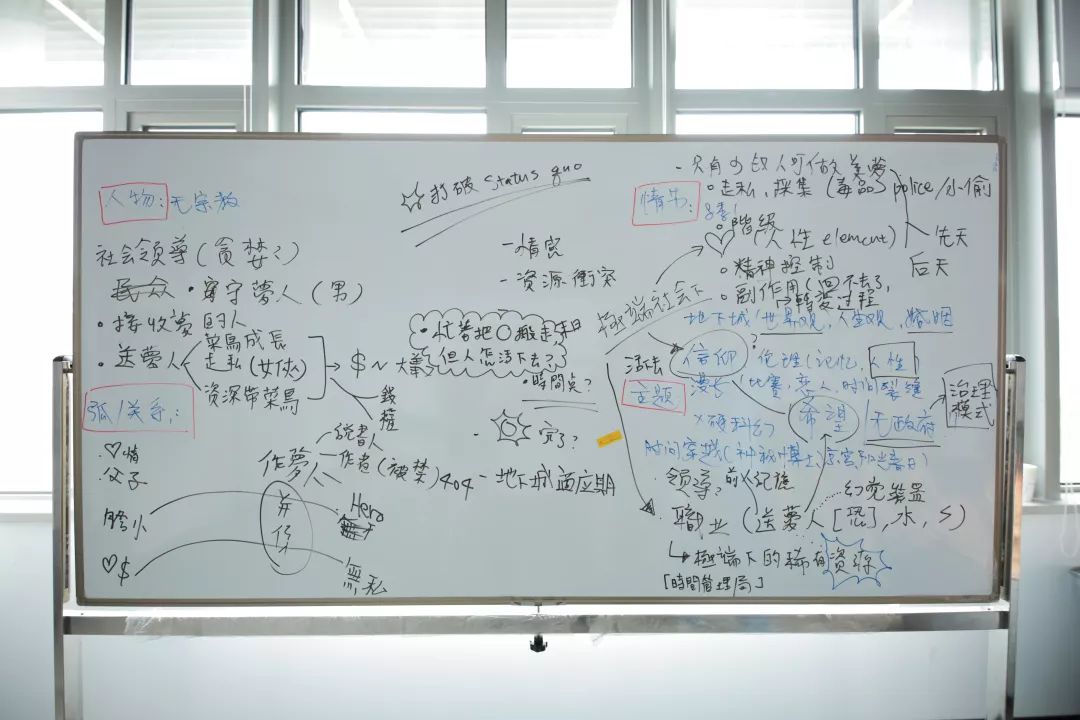 人物:无宗教
社会领导(貪婪?)
民众 · 寄守夢人(男)
· 接收夢的人
· 送夢人
菜鳥成長
走私(女俠)
資深帶菜鳥
$ ~ 大
錢
權
弧/关系:
♡情
父子
膽小
♡$
作夢人
统者人
作者(被禁)404 - 地下城適应期
Hero
無私
打破 status quo
- 情感
- 資源衝突
· 忙着把○搬走
但人怎活下去了?
· 時間点?
完了?
情节:
- 只有少奴人可做美夢
· 走私、採集(毒品) police/小偷
· 階級
(人性 element)
先天
后天
· 精神控制
· 副作用(回不去了,
→轉變过程
極端社会下
地下城(世界观,人生观,婚姻
活法
信仰
伦理(记忆,人性)
主题
漫长(比賽,变人,时间裂缝
希望
无政府
治理
模式
X硬科幻
时间穿越(神秘博士
領導? 前人記憶
幻觉裝置
· 職业(送夢人[恐],水,S)
↳ 極端下的稀有資源
[時間管理局]